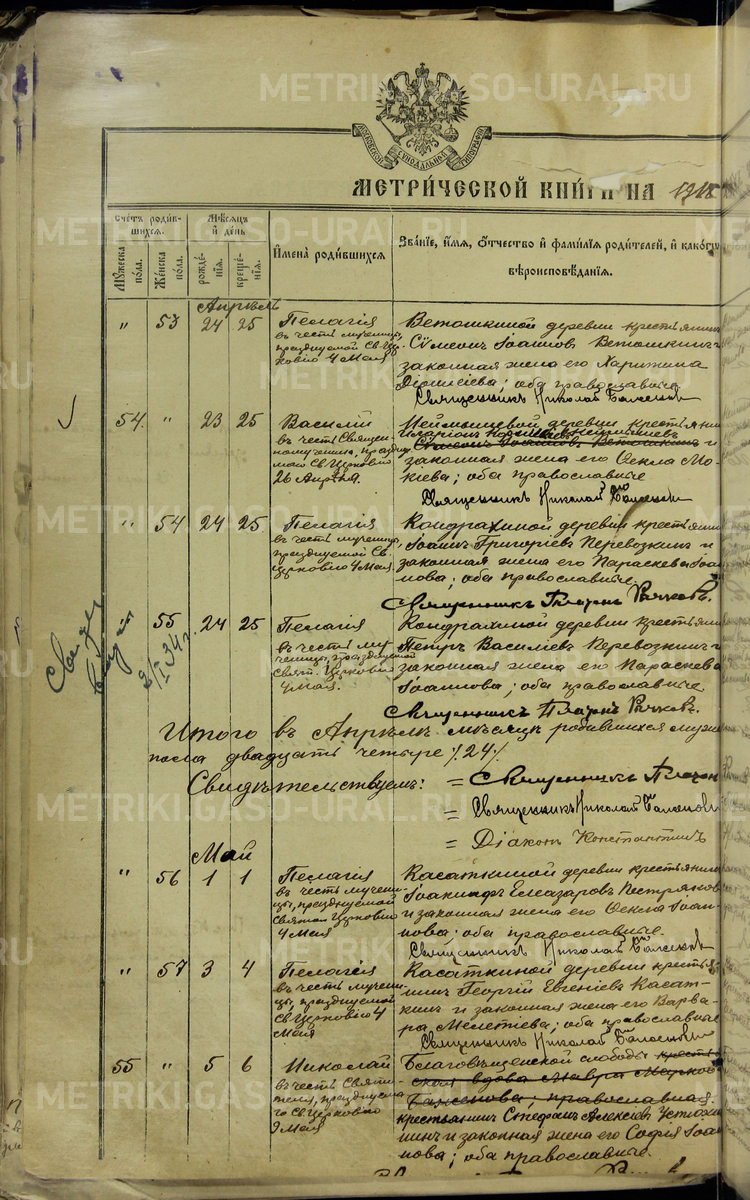 METRIKI.GASO-URAL.RU
МОСКОВСКОЙ СѴНОДАЛЬНОЙ ТИПОГРАФІИ
МЕТРИ́ЧЕСКОЙ КНИ́ГИ НА 1915
Сче́тъ роди́вшихся.
Мѣ́сяцъ и҆ де́нь
Мꙋ́жеска по́ла.
Же́нска по́ла.
рожде́нїѧ.
креще́нїѧ.
И҆мена̀ роди́вшихся
Зва́нїе, и҆́мя, ѻ҆́тчество и҆ фами́лїя роди́телей, и҆ како́гѡ
вѣроисповѣ́данїя.
Апрѣль
" 53 24 25 Пелагія
въ честь мученицы,
празднуемой Св. Цер
ковію 4 Мая
Ветошкиной деревни крестьянинъ
Сѵмеонъ Іоанновъ Ветошкинъ
законная жена его Харитина
Діонисіева; оба православные
Священникъ Николай
54. " 23 25 Василій
въ честь Священ
номученика, праздну
мой Св. Церковію
26 Апрѣля.
деревни крестьянин
Иларіонъ
Сѵмеонъ Іоанновъ Ветошкинъ и
законная жена его Ѳекла Мо
кіева; оба православные
Священникъ Николай
" 54 24 25 Пелагія
въ честь мученицы,
празднуемой Св.
Церковію 4 Мая.
Кондрахиной деревни крестьянин
Іоаннъ Григоріевъ Перевозкинъ и
законная жена его Параскева Іоан
нова; оба православные.
Священникъ Платонъ
55 24 25 Пелагія
въ честь му
ченицы, празднуемой
Свят. Церковію
4 Мая.
Кондрахиной деревни крестьянин
Петръ Василіевъ Перевозкинъ и
законная жена его Параскева
Іоаннова; оба православные.
Священникъ Платонъ
3/I 34 г.
Итого въ Апрѣлѣ мѣсяцѣ родившихся муже
пола двадцать четыре /24/.
Свидѣтельствуемъ: = Священникъ Платон
= Священникъ Николай
= Діаконъ Константинъ
Май
" 56 1 1 Пелагія
въ честь мучени
цы, празднуемой
Святой Церковію
4 Мая
Касаткиной деревни крестьянинъ
Іоакимъ Елеазаровъ Пестряков
и законная жена его Ѳекла Іоан
нова; оба православные.
Священникъ Николай
" 57 3 4 Пелагія
въ честь мучени
цы, празднуемой
Св. Церковію 4
Мая
Касаткиной деревни крестья
нинъ Георгій Евгеніевъ Касат-
кинъ и законная жена его Варва
ра Мелетіева; оба православные
Священникъ Николай
55 " 5 6 Николай
въ честь Святи
теля, празднуема
го Св. Церковію
9 Мая
Благовѣщенской слободы крестья
ская вдова Мавра
православная.
крестьянинъ Стефанъ Алексіевъ Устюжа
нинъ и законная жена его Софія Іоан
нова; оба православные.